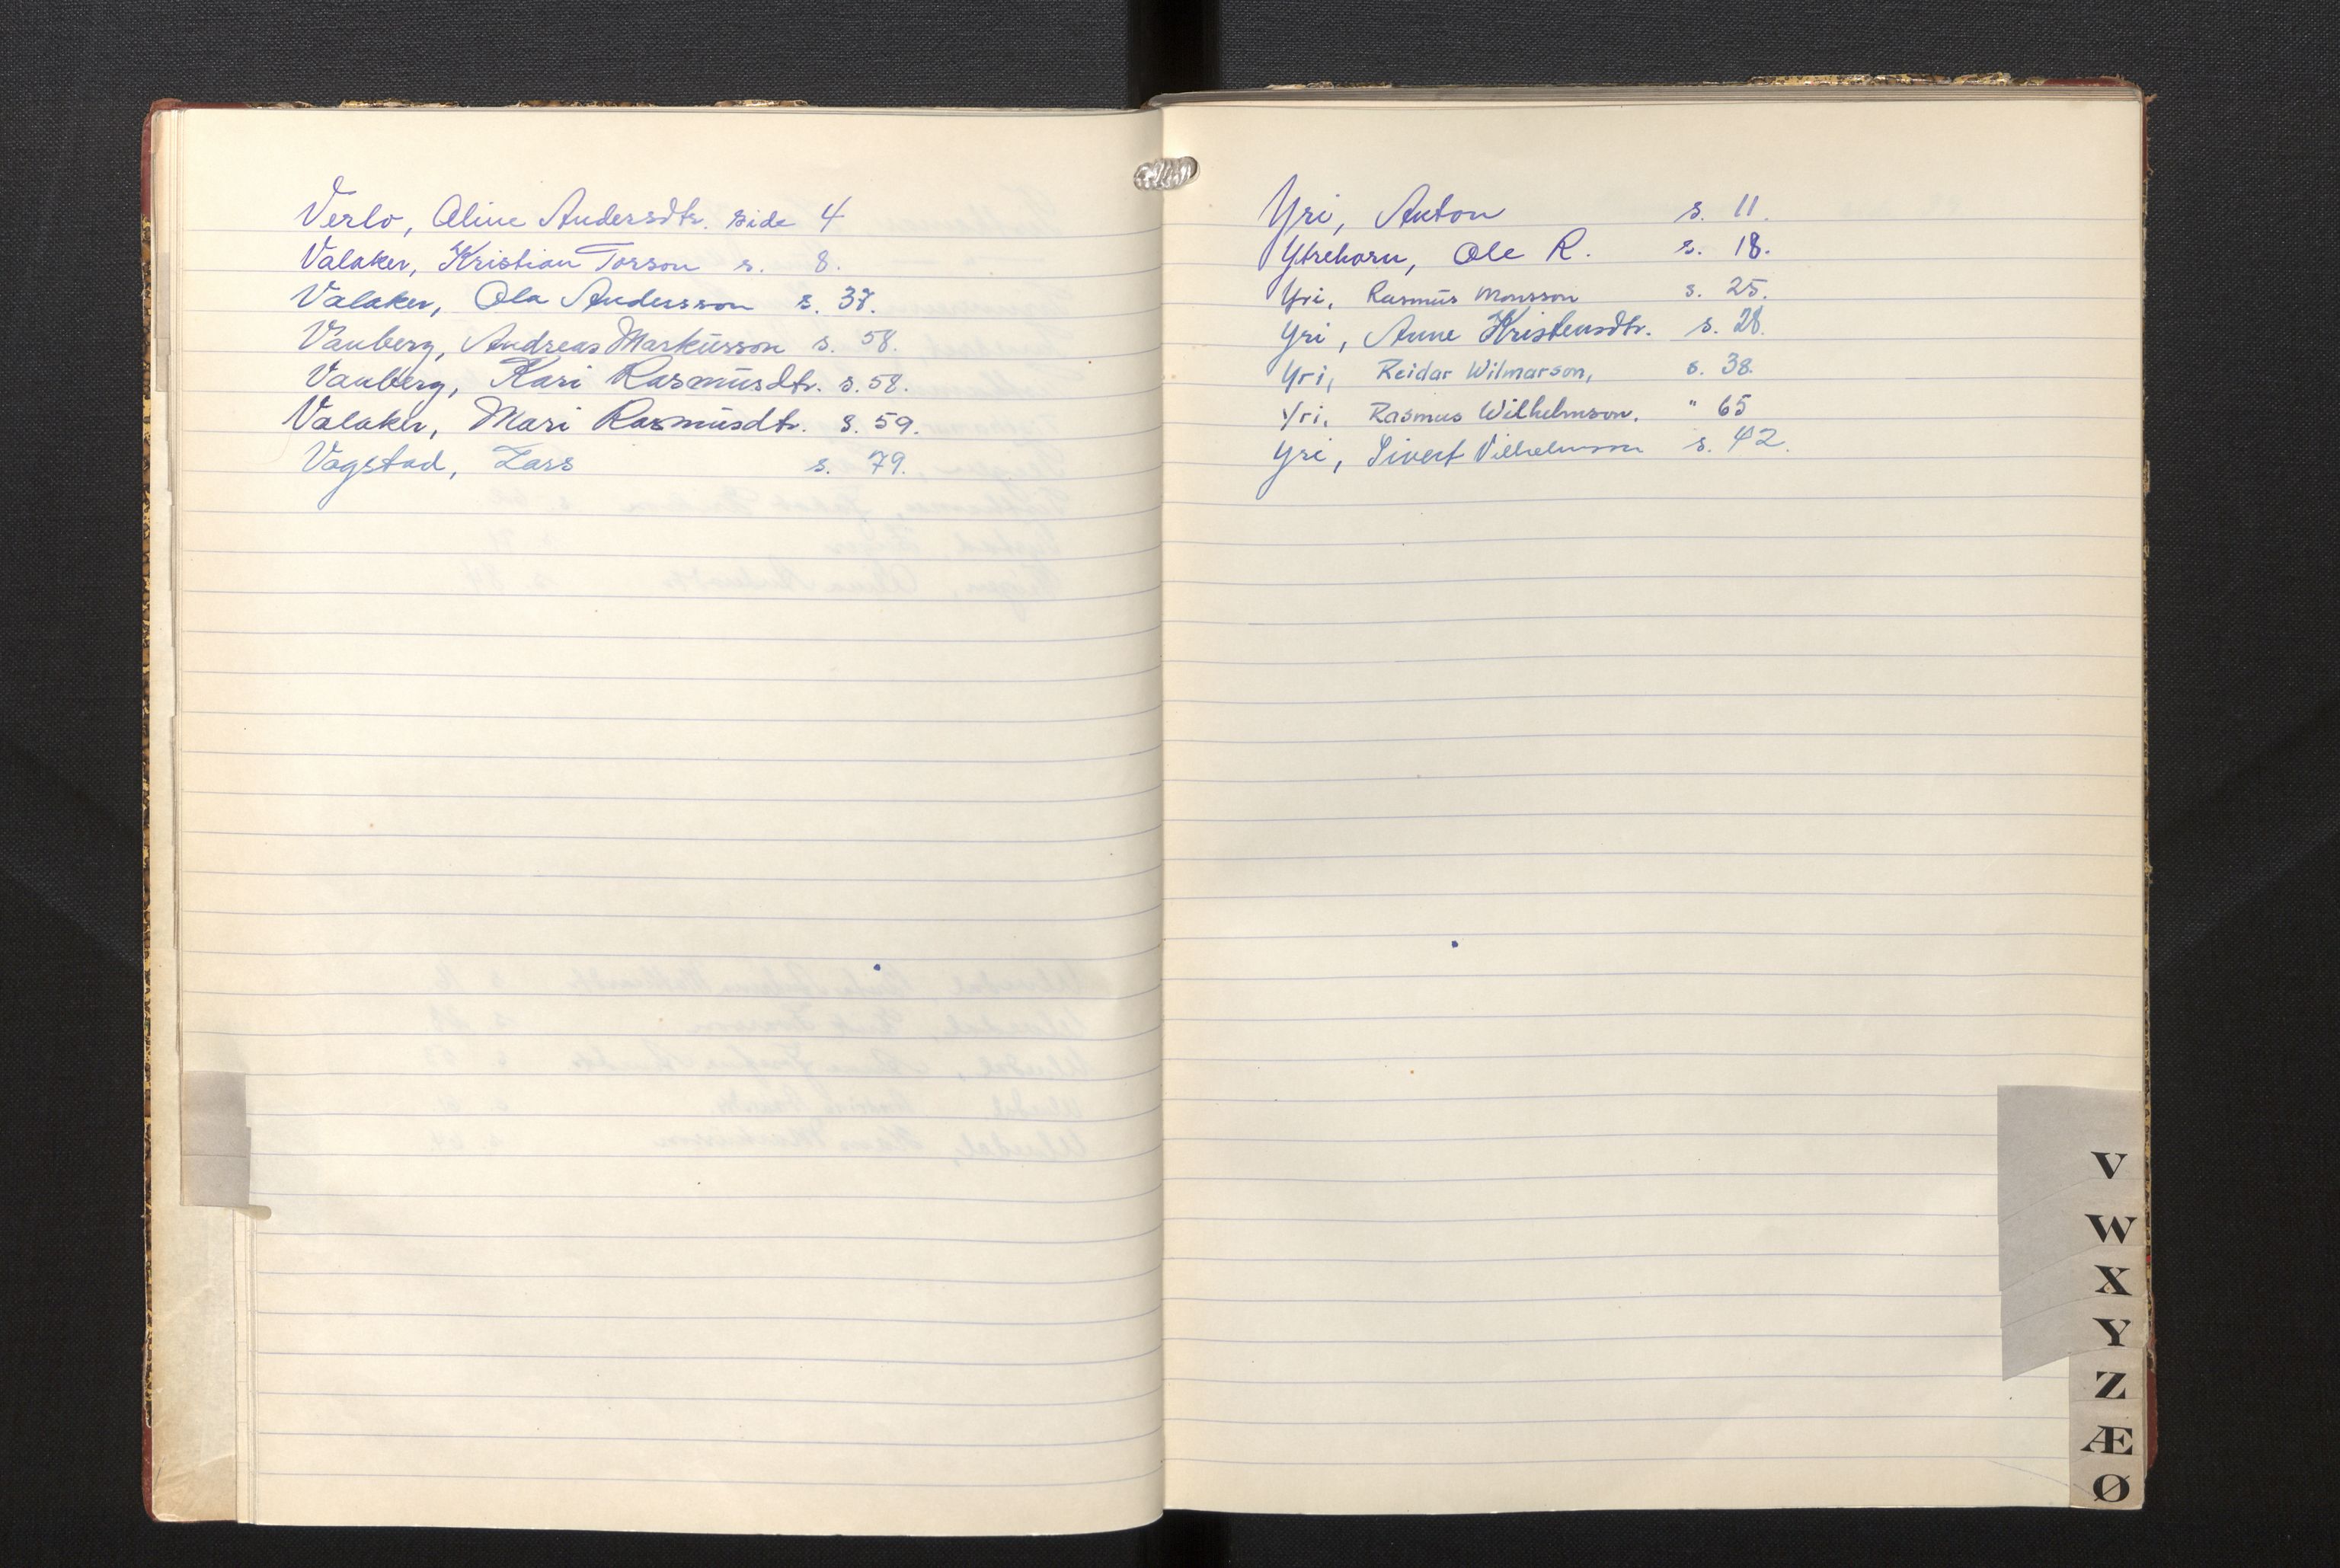 Verlo, Oline Andersdtr. side 4
Valaker, Kristian Torson s. 8.
Valaker, Ola Andersson s. 37.
Vanberg, Andreas Markusson s. 58.
Vanberg, Kari Rasmusdtr. s. 58.
Valaker, Mari Rasmusdtr. s. 59.
Vagstad, Lars s. 79.
Yri, Anton s. 11.
Ytrehorn, Ole R. s. 18.
Yri, Rasmus Monsson s. 25.
Yri, Anne Kristensdtr. s. 28.
Yri, Reidar Wilmarson, s. 38.
Yri, Rasmus Wilhelmson. " 65
Yri, Sivert Vilhelmson s. 42.
V
W
X
Y
Z
Æ
Ø